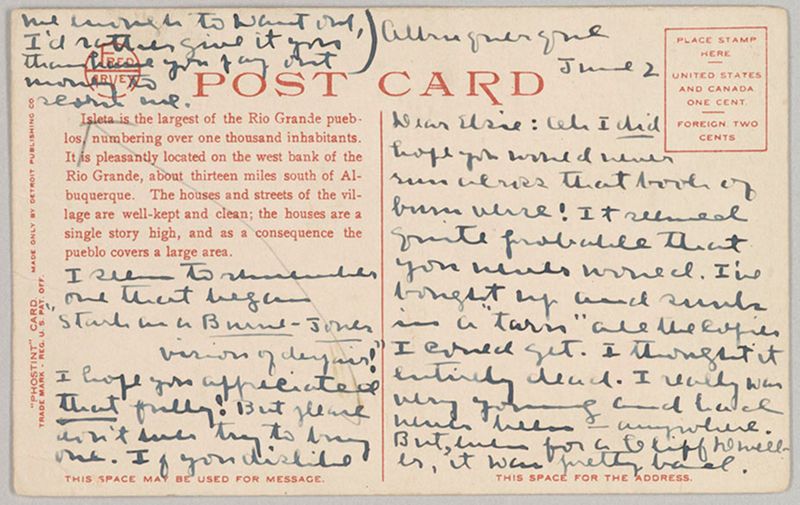 Albuquerque
June 2
POST CARD
PLACE STAMP
HERE
UNITED STATES
AND CANADA
ONE CENT.
FOREIGN TWO
CENTS
Dear Elsie: Oh I did
hope you would never
run across that book of
bum verse! It seemed
quite probable that
you never would. I've
bought up and sunk
in a "tarn" all the copies
I could get. I thought it
entirely dead. I really was
very young and had
never been anywhere.
But, even for a Cliff Dwell-
er, it was pretty bad.
THIS SPACE FOR THE ADDRESS.
Isleta is the largest of the Rio Grande pueb-
los, numbering over one thousand inhabitants.
It is pleasantly located on the west bank of the
Rio Grande, about thirteen miles south of Al-
buquerque. The houses and streets of the vil-
lage are well-kept and clean; the houses are a
single story high, and as a consequence the
pueblo covers a large area.
I seem to remember
one that began
"Stark as a Burne-Jones
vision of despair!"
I hope you appreciated
that fully! But please
don't ever try to buy
one. If you dislike
me enough to want one,
I'd rather give it you
than have you pay out
money to
resent me.
FRED
HARVEY
THIS SPACE MAY BE USED FOR MESSAGE.
"PHOSTINT" CARD. MADE ONLY BY DETROIT PUBLISHING CO.
TRADE MARK - REG. U. S. PAT. OFF.